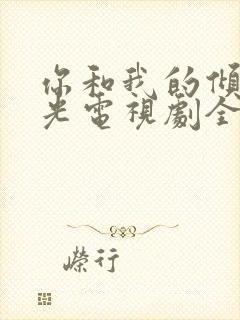 你和我的傾
光電視劇全
嶸行